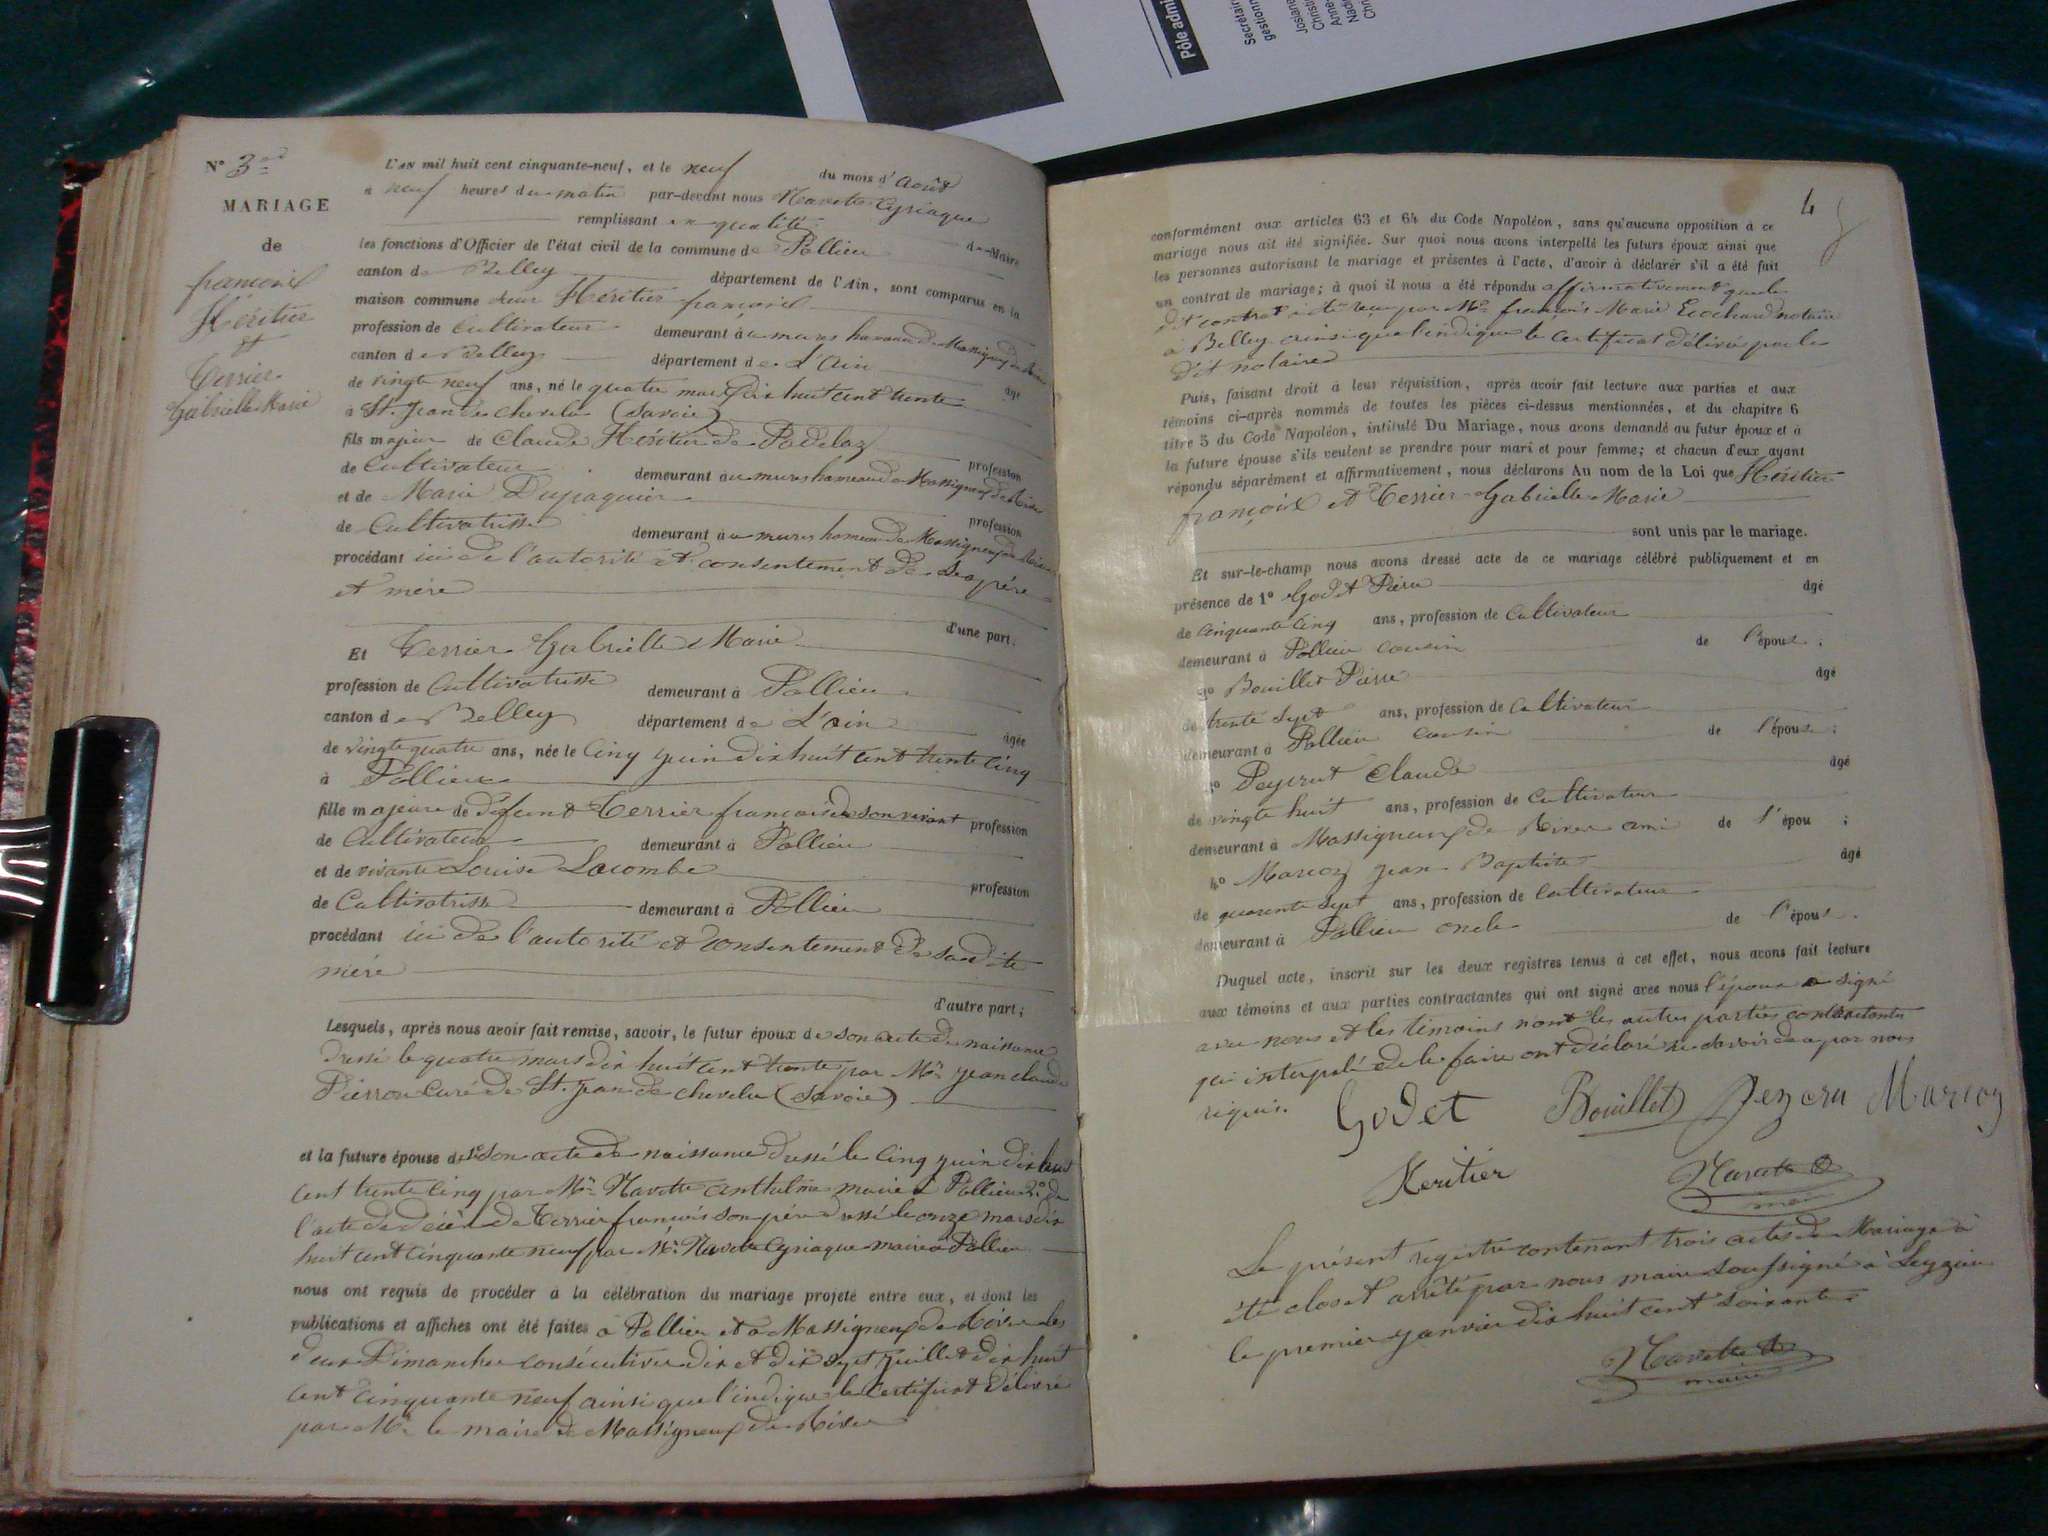 Pôle admi
Secrétair
gestionn
Josiane
Christi
Anne
Nadi
Ch
N° 3
MARIAGE
de
françois
Héritier
et
Terrier
Gabrielle Marie
L'AN mil huit cent cinquante-neuf, et le neuf du mois d'Août
à neuf heures du matin par-devant nous Navette Cyriaque
remplissant en qualité de Maire
les fonctions d'Officier de l'état civil de la commune de Pollieu
canton de Belley département de l'Ain, sont comparus en la
maison commune sieur Héritier françois
profession de Cultivateur demeurant à mures hameau de Massigneux de Rives
canton de Belley département de L'Ain âgé
de vingt neuf ans, né le quatre mars dix huit cent trente
à St. Jean de chevelu (Savoie)
fils majeur de Claude Héritier de profession
de Cultivateur demeurant à mures hameau de Massigneux de Rives
et de Marie Dupaquier profession
de Cultivatrisse demeurant à mures hameau de Massigneux de Rives
procédant ici de l'autorité et consentement de ses père
et mère
d'une part.
Et Terrier Gabrielle Marie
profession de Cultivatrisse demeurant à Pollieu
canton de Belley département de L'ain âgée
de vingt quatre ans, née le Cinq juin dix huit cent trente cinq
à Pollieu
fille majeure de défunt Terrier françois de son vivant profession
de Cultivateur demeurant à Pollieu
et de vivante Louise Lacombe profession
de Cultivatrisse demeurant à Pollieu
procédant ici de l'autorité et consentement de sa dite
mère
d'autre part;
Lesquels, après nous avoir fait remise, savoir, le futur époux de son acte de naissance
dressé le quatre mars dix huit cent trente par Mr. jean claude
Pierron Curé de St. jean de chevelu (Savoie)
et la future épouse de 1° son acte de naissance dressé le Cinq juin dix huit
cent trente Cinq par Mr. Navette anthelme maire à Pollieu 2° de
l'acte de décès de Terrier françois son père dressé le onze mars dix
huit cent cinquante neuf par Mr. Navette Cyriaque maire à Pollieu
nous ont requis de procéder à la célébration du mariage projeté entre eux, et dont les
publications et affiches ont été faites à Pollieu et à Massigneux de Rives les
deux Dimanches consécutives dix et dix sept juillet dix huit
cent cinquante neuf ainsi que l'indique le Certificat délivré
par Mr. le maire de Massigneux de Rives
4
conformément aux articles 63 et 64 du Code Napoléon, sans qu'aucune opposition à ce
mariage nous ait été signifiée. Sur quoi nous avons interpellé les futurs époux ainsi que
les personnes autorisant le mariage et présentes à l'acte, d'avoir à déclarér s'il a été fait
un contrat de mariage; à quoi il nous a été répondu affirmativement que le
dit contrat a été reçu par Me. françois Marie Ecochard notaire
à Belley ainsi que l'indique le Certificat délivré par le
dit notaire
Puis, faisant droit à leur réquisition, après avoir fait lecture aux parties et aux
témoins ci-après nommés de toutes les pièces ci-dessus mentionnées, et du chapitre 6
titre 5 du Code Napoléon, intitulé Du Mariage, nous avons demandé au futur époux et à
la future épouse s'ils veulent se prendre pour mari et pour femme; et chacun d'eux ayant
répondu séparément et affirmativement, nous déclarons Au nom de la Loi que Héritier
françois et Terrier Gabrielle Marie
sont unis par le mariage.
Et sur-le-champ nous avons dressé acte de ce mariage célébré publiquement et en
présence de 1° Godet Pierre âgé
de Cinquante Cinq ans, profession de Cultivateur
demeurant à Pollieu cousin de l'épouse;
2° Bouillet Pierre âgé
de trente sept ans, profession de Cultivateur
demeurant à Pollieu cousin de l'épouse;
3° Peycrut Claude âgé
de vingt huit ans, profession de Cultivateur
demeurant à Massigneux de Rives ami de l'épou ;
4° Marcoz jean Baptiste âgé
de quarente sept ans, profession de Cultivateur
demeurant à Pollieu oncle de l'épouse.
Duquel acte, inscrit sur les deux registres tenus à cet effet, nous avons fait lecture
aux témoins et aux parties contractantes qui ont signé avec nous l'époux a signé
avec nous et les témoins non les autres parties contractantes
qui interpelé de le faire ont déclaré ne savoir de par nous
requis.
Godet Bouillet Peycru Marcoz
Heritier Navette
maire
Le présent registre contenant trois actes de Mariage à
été clos et arrêté par nous maire soussigné à Leyzieu
le premier janvier dix huit cent soixante
Navette
maire